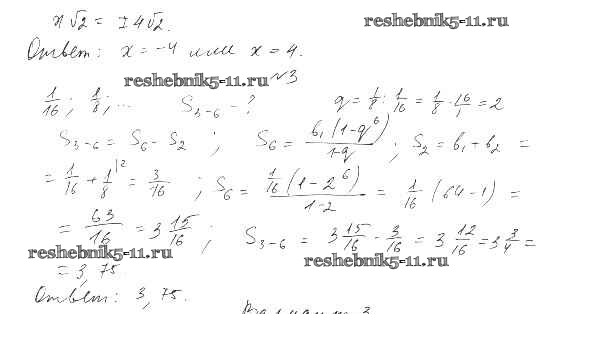 x√2 = ±4√2.
reshebnik5-11.ru
Ответ: x = -4 или x = 4.
reshebnik5-11.ru №3
1/16; 1/8; ... S₃₋₆ - ? q = 1/8 : 1/16 = 1/8 · 16/1 = 2
S₃₋₆ = S₆ - S₂ ; S₆ = b₁(1-q⁶)/1-q ; S₂ = b₁ + b₂ =
= 1/16 + 1/8|² = 3/16 ; S₆ = 1/16 (1-2⁶)/1-2 = 1/16 (64-1) =
= 63/16 = 3 15/16 ; S₃₋₆ = 3 15/16 - 3/16 = 3 12/16 = 3 3/4 =
reshebnik5-11.ru reshebnik5-11.ru
= 3,75
Ответ: 3,75.